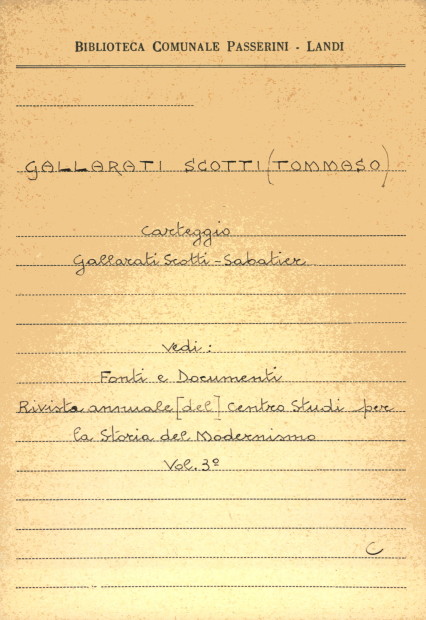 BIBLIOTECA COMUNALE PASSERINI - LANDI
GALLARATI SCOTTI (TOMMASO)
Carteggio
Gallarati Scotti - Sabatier
Vedi:
Fonti e Documenti
Rivista annuale [del] Centro Studi per
la Storia del Modernismo
Vol. 3º
C